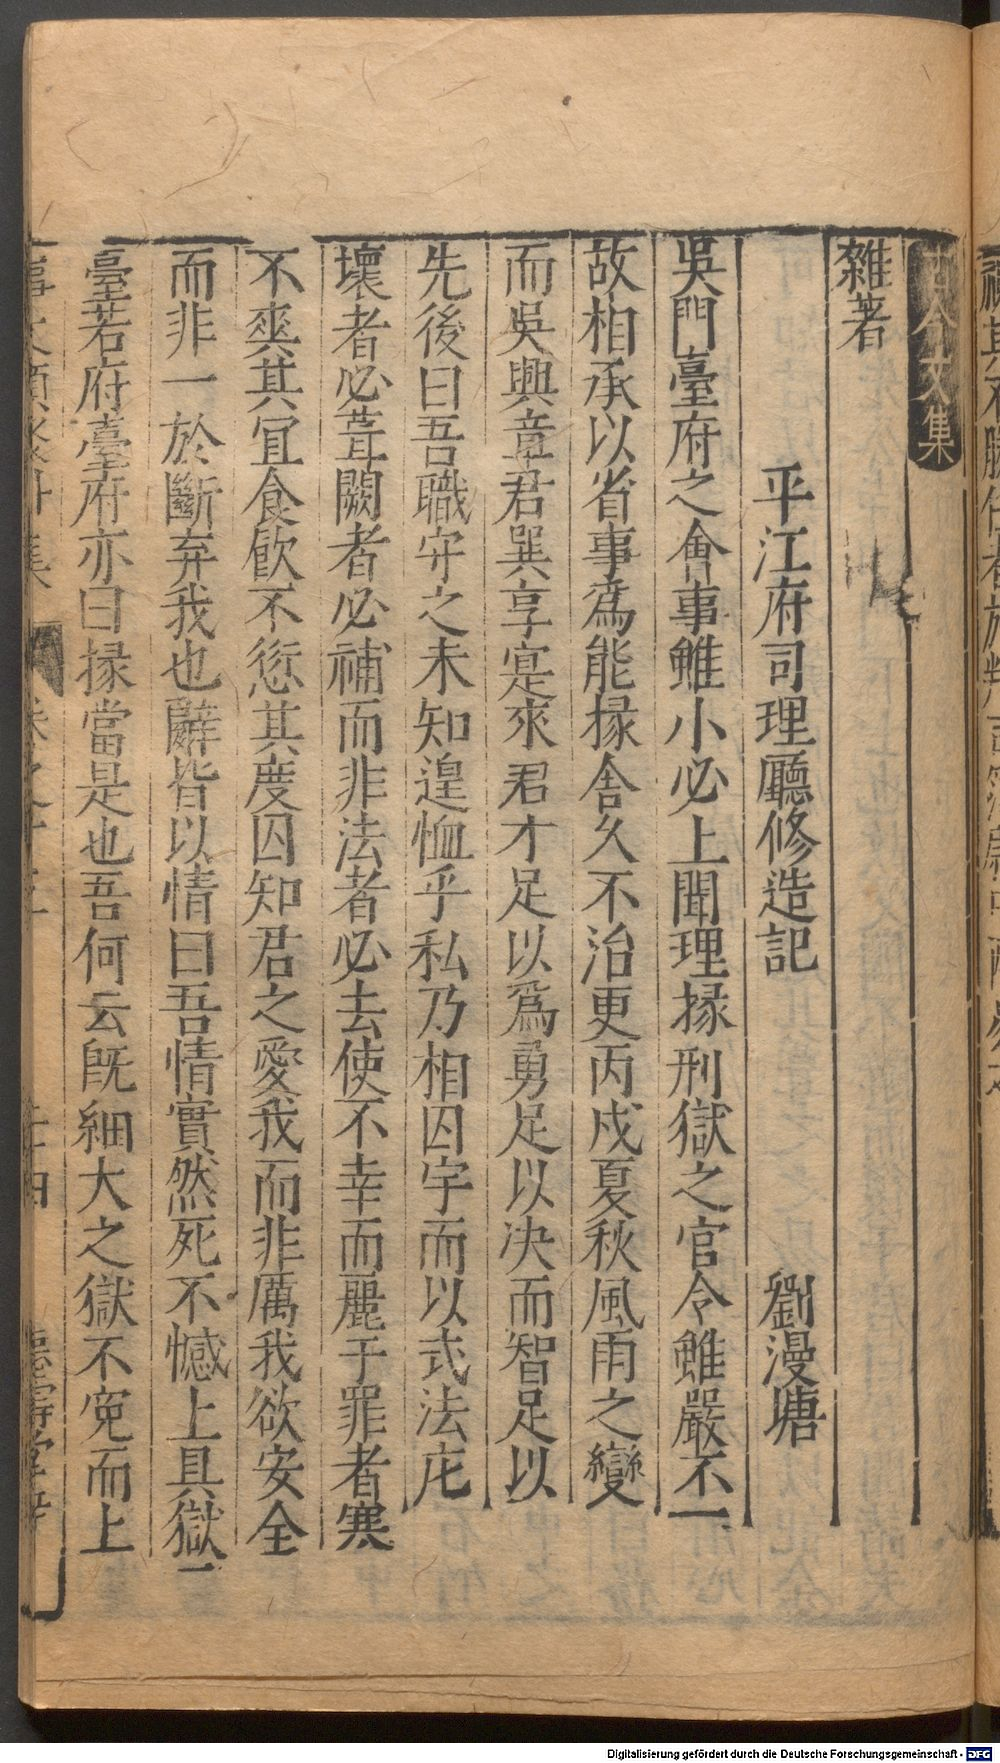 古今文集
雜著
平江府司理廳修造記 劉漫塘
吳門臺府之會事雖小必上聞理掾刑獄之官令雖嚴不一
故相承以省事爲能掾舍久不治更丙戍夏秋風雨之變
而吳興章君巽亨寔來君才足以爲勇足以决而智足以
先後曰吾職守之未知遑恤乎私乃相囚宇而以式法庀
壞者必葺闕者必補而非法者必去使不幸而麗于罪者寒
不爽其宜食飲不愆其度囚知君之愛我而非厲我欲安全
而非一於斷弃我也辭皆以情曰吾情實然死不憾上具獄
臺若府臺府亦曰掾當是也吾何云旣細大之獄不寃而上
事文類聚外集 卷之十 德壽堂
Digitalisierung gefördert durch die Deutsche Forschungsgemeinschaft - DFG